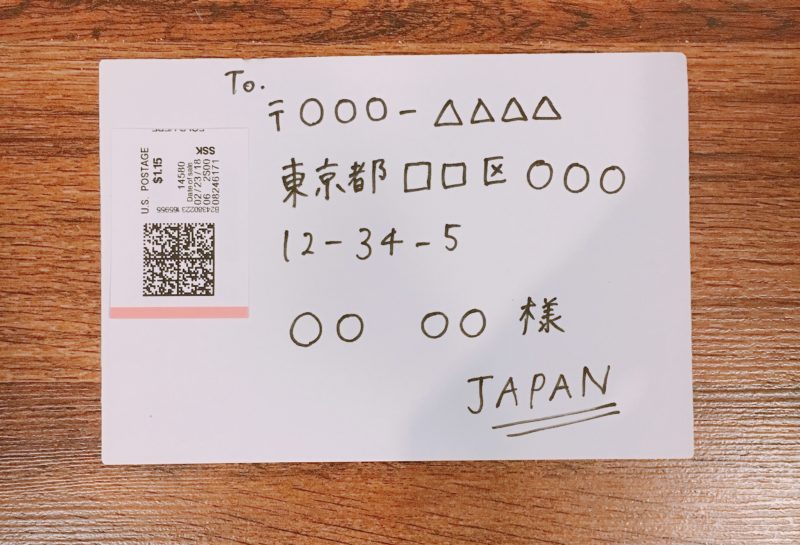 To.
〒○○○-△△△△
東京都□□区○○○
12-34-5
○○ ○○ 様
JAPAN
U.S. POSTAGE
$1.15
SSK
14580
Date of sale
02/23/18
06 2S00
08246171